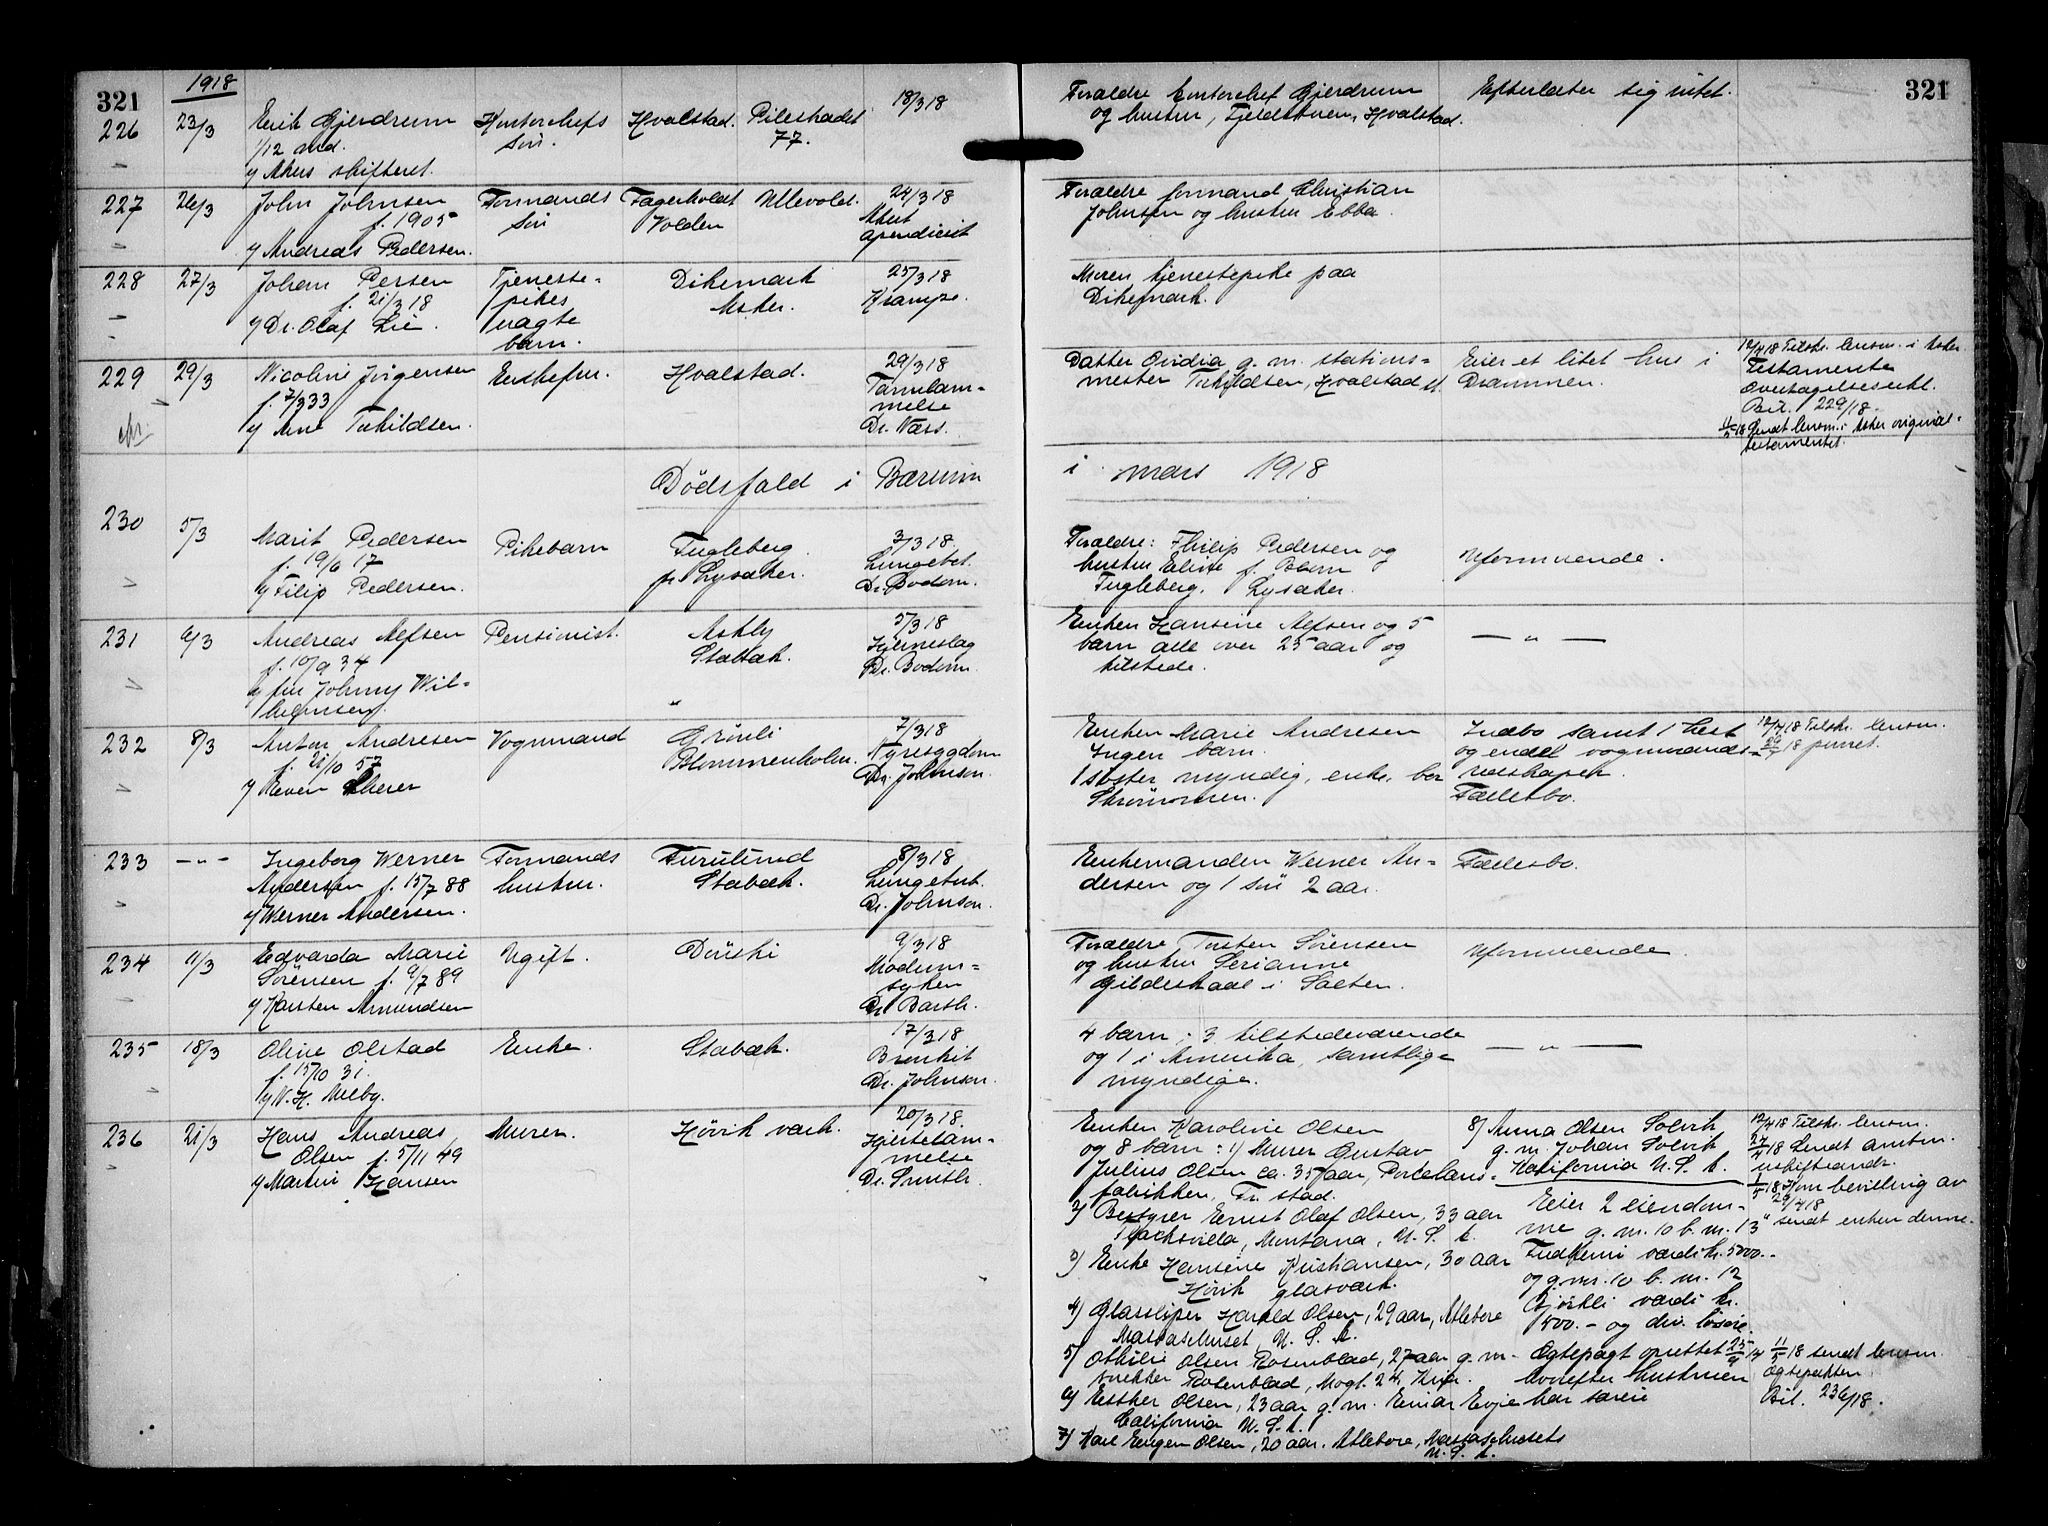 321
1918
226
23/3
Erik Gjerdrum
1/12 md.
y Akers skifteret.
Kontorchefs
sön.
Hvalstad.
Pilestrædet
77.
18/3 18
Forældre kontorchef Gjerdrum
og hustru, Fjeldstuen, Hvalstad.
Efterlater sig intet.
321
227
26/3
John Johnsen
f. 1905
y Andreas Pedersen.
Formands
sön
Fagerholdt
Volden
Ullevold.
24/3 18
Akut
apendicit
Forældre formand Christian
Johnsen og hustru Ebba.
228
27/3
Johan Persen
f. 21/3 18
y Dr. Olaf Lie.
Tjeneste-
pikes
uægte
barn.
Dikemark
Asker.
25/3 18
Krampe.
Moren tjenestepike paa
Dikemark.
229
29/3
Nicoline Jörgensen
f. 7/3 33
y Arne Torkildsen.
Enkefru.
Hvalstad.
29/3 18
Tarmlam-
melse
Dr. Næss.
Datter Ovidia g. m. stations-
mester Torkildsen, Hvalstad st.
Eier et litet hus i
Drammen.
12/4 18 Tilskr. lensm. i Asker
Testamente
Overtagelseserkl.
Bil. 229/18.
11/5 18 Sendt lensm. i Asker original-
testamentet.
Dödsfald i Bærum
i mars 1918
230
5/3
Marit Pedersen
f. 19/6 17
y Filip Pedersen.
Pikebarn
Fugleberg
pr. Lysaker.
3/3 18.
Lungebet.
Dr. Bodom.
Forældre: Philip Pedersen og
hustru Elise f. Blom
Fugleberg, Lysaker.
Uformuende.
231
6/3
Andreas Alfsen
f. 10/9 34
y fru Johnny Wil-
helmsen.
Pensionist.
Askly
Stabæk.
"
5/3 18
Hjerneslag
Dr. Bodom.
Enken Hansine Alfsen og 5
barn alle over 25 aar og
tilstede.
— " —
232
8/3
Anton Andresen
f. 21/10 57
y Scherer
Vognmand
Grönli
Blommenholm.
7/3 18
Nyresygdom
Dr. Johnson.
Enken Marie Andresen
Ingen barn.
1 söster myndig, enke, bor
Strömmen.
Indbo samt 1 hest
og endel vognmands-
redskaper.
Fællesbo.
12/4 18 Tilskr. lensm.
18 purret.
233
— " —
Ingeborg Werner
Andersen f. 15/7 88
y Werner Andersen.
Formands
hustru.
Furulund
Stabæk.
8/3 18
Lungetub.
Dr. Johnson.
Enkemanden Werner An-
dersen og 1 sön 2 aar.
Fællesbo.
234
11/3
Edvarda Marie
Sörensen f. 9/7 89
y Karsten Amundsen
Ugift.
Dönski
9/3 18
Modum-
syken
Dr. Barth.
Forældre Torsten Sörensen
og hustru Serianne
Gildeskaal i Salten.
Uformuende
235
18/3
Oline Olstad
f. 15/10 31.
y N. H. Melby.
Enke.
Stabæk.
17/3 18
Bronkit
Dr. Johnson.
4 barn; 3 tilstedeværende
og 1 i Amerika, samtlige
myndige.
— " —
236
21/3
Hans Andreas
Olsen f. 5/11 49
y Martin Hansen
Murer.
Hövik værk.
20/3 18.
Hjertelam-
melse
Dr. Smith.
Enken Karoline Olsen
og 8 barn: 1) Murer Gustav
Julius Olsen ca. 35 aar, Porcelæns-
fabrikken, Fr.stad.
2) Bestyrer Ernst Olaf Olsen, 33 aar
Montana, U. S. A.
3) Enke Hansine Kristiansen, 30 aar
Hövik glasværk.
4) Glassliper Harald Olsen, 29 aar, Atlebore
Massachuset, U. S. A.
5) Othilie Olsen Rosenblad, 27 aar g. m.
snekker Rosenblad, Mogt. 24, Kr.a.
6) Esther Olsen, 23 aar g. m. Einar Evje
California U. S. A.
7) Karl Eugen Olsen, 20 aar. Atlebore, Massachusets
U. S. A.
8) Anna Olsen Solvik
g. m. Johan Solvik
Kalifornia U. S. A.
Eier 2 eiendom-
me g. nr. 10 b. nr. 13
Fredheim værdi kr. 5000.-
og g. nr. 10 b. nr. 12
værdi kr.
1500.- og div. lösöre.
Egtepagt oprettet 25/9 14
hvorefter hustruen
har særeie
12/4 18 Tilskr. lensm.
24/4 18 Sendt amtm.
uskifteandr.
1/5 18 Kom bevilling av
29/4 18
" sendt enken denne.
11/5 18 sendt lensm.
Egtepakten
Bil. 236/18.